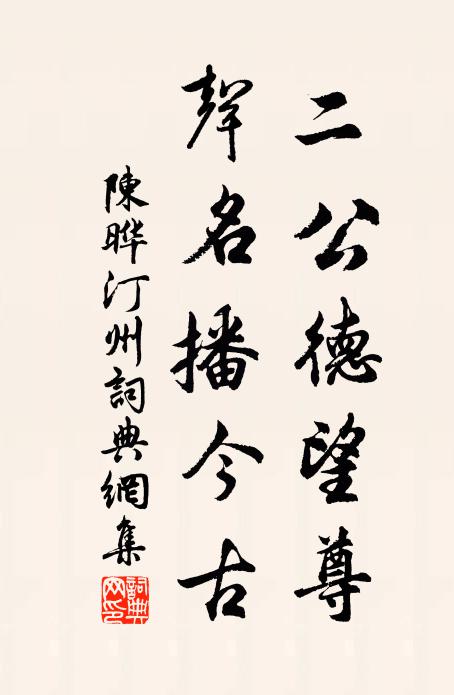 二公德望尊
聲名播今古
陳曄汀州詞典網集
詞典网印